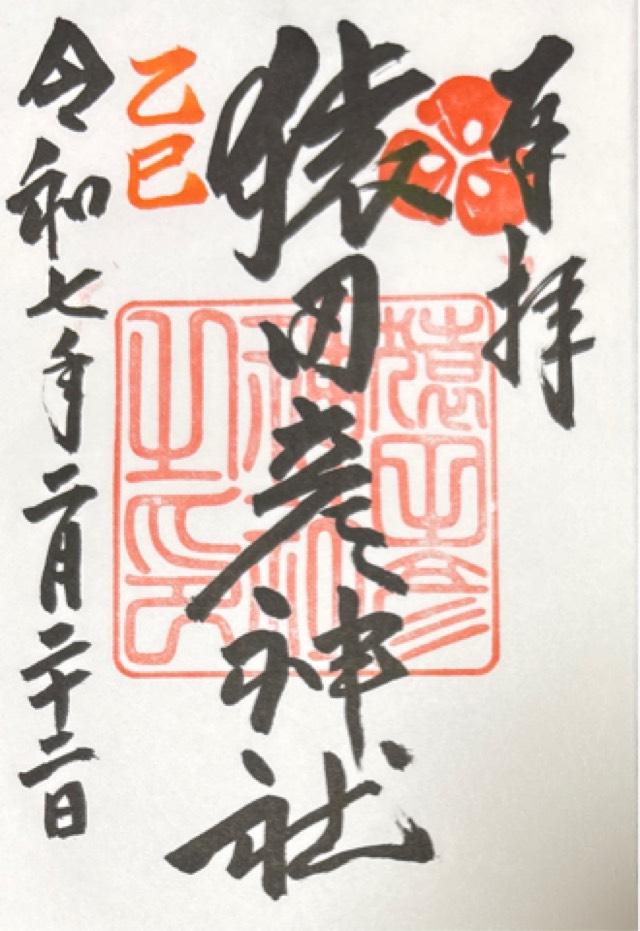 奉拝
猿田彦神社
乙巳
令和七年二月二十二日
猿田彦
神社
之印